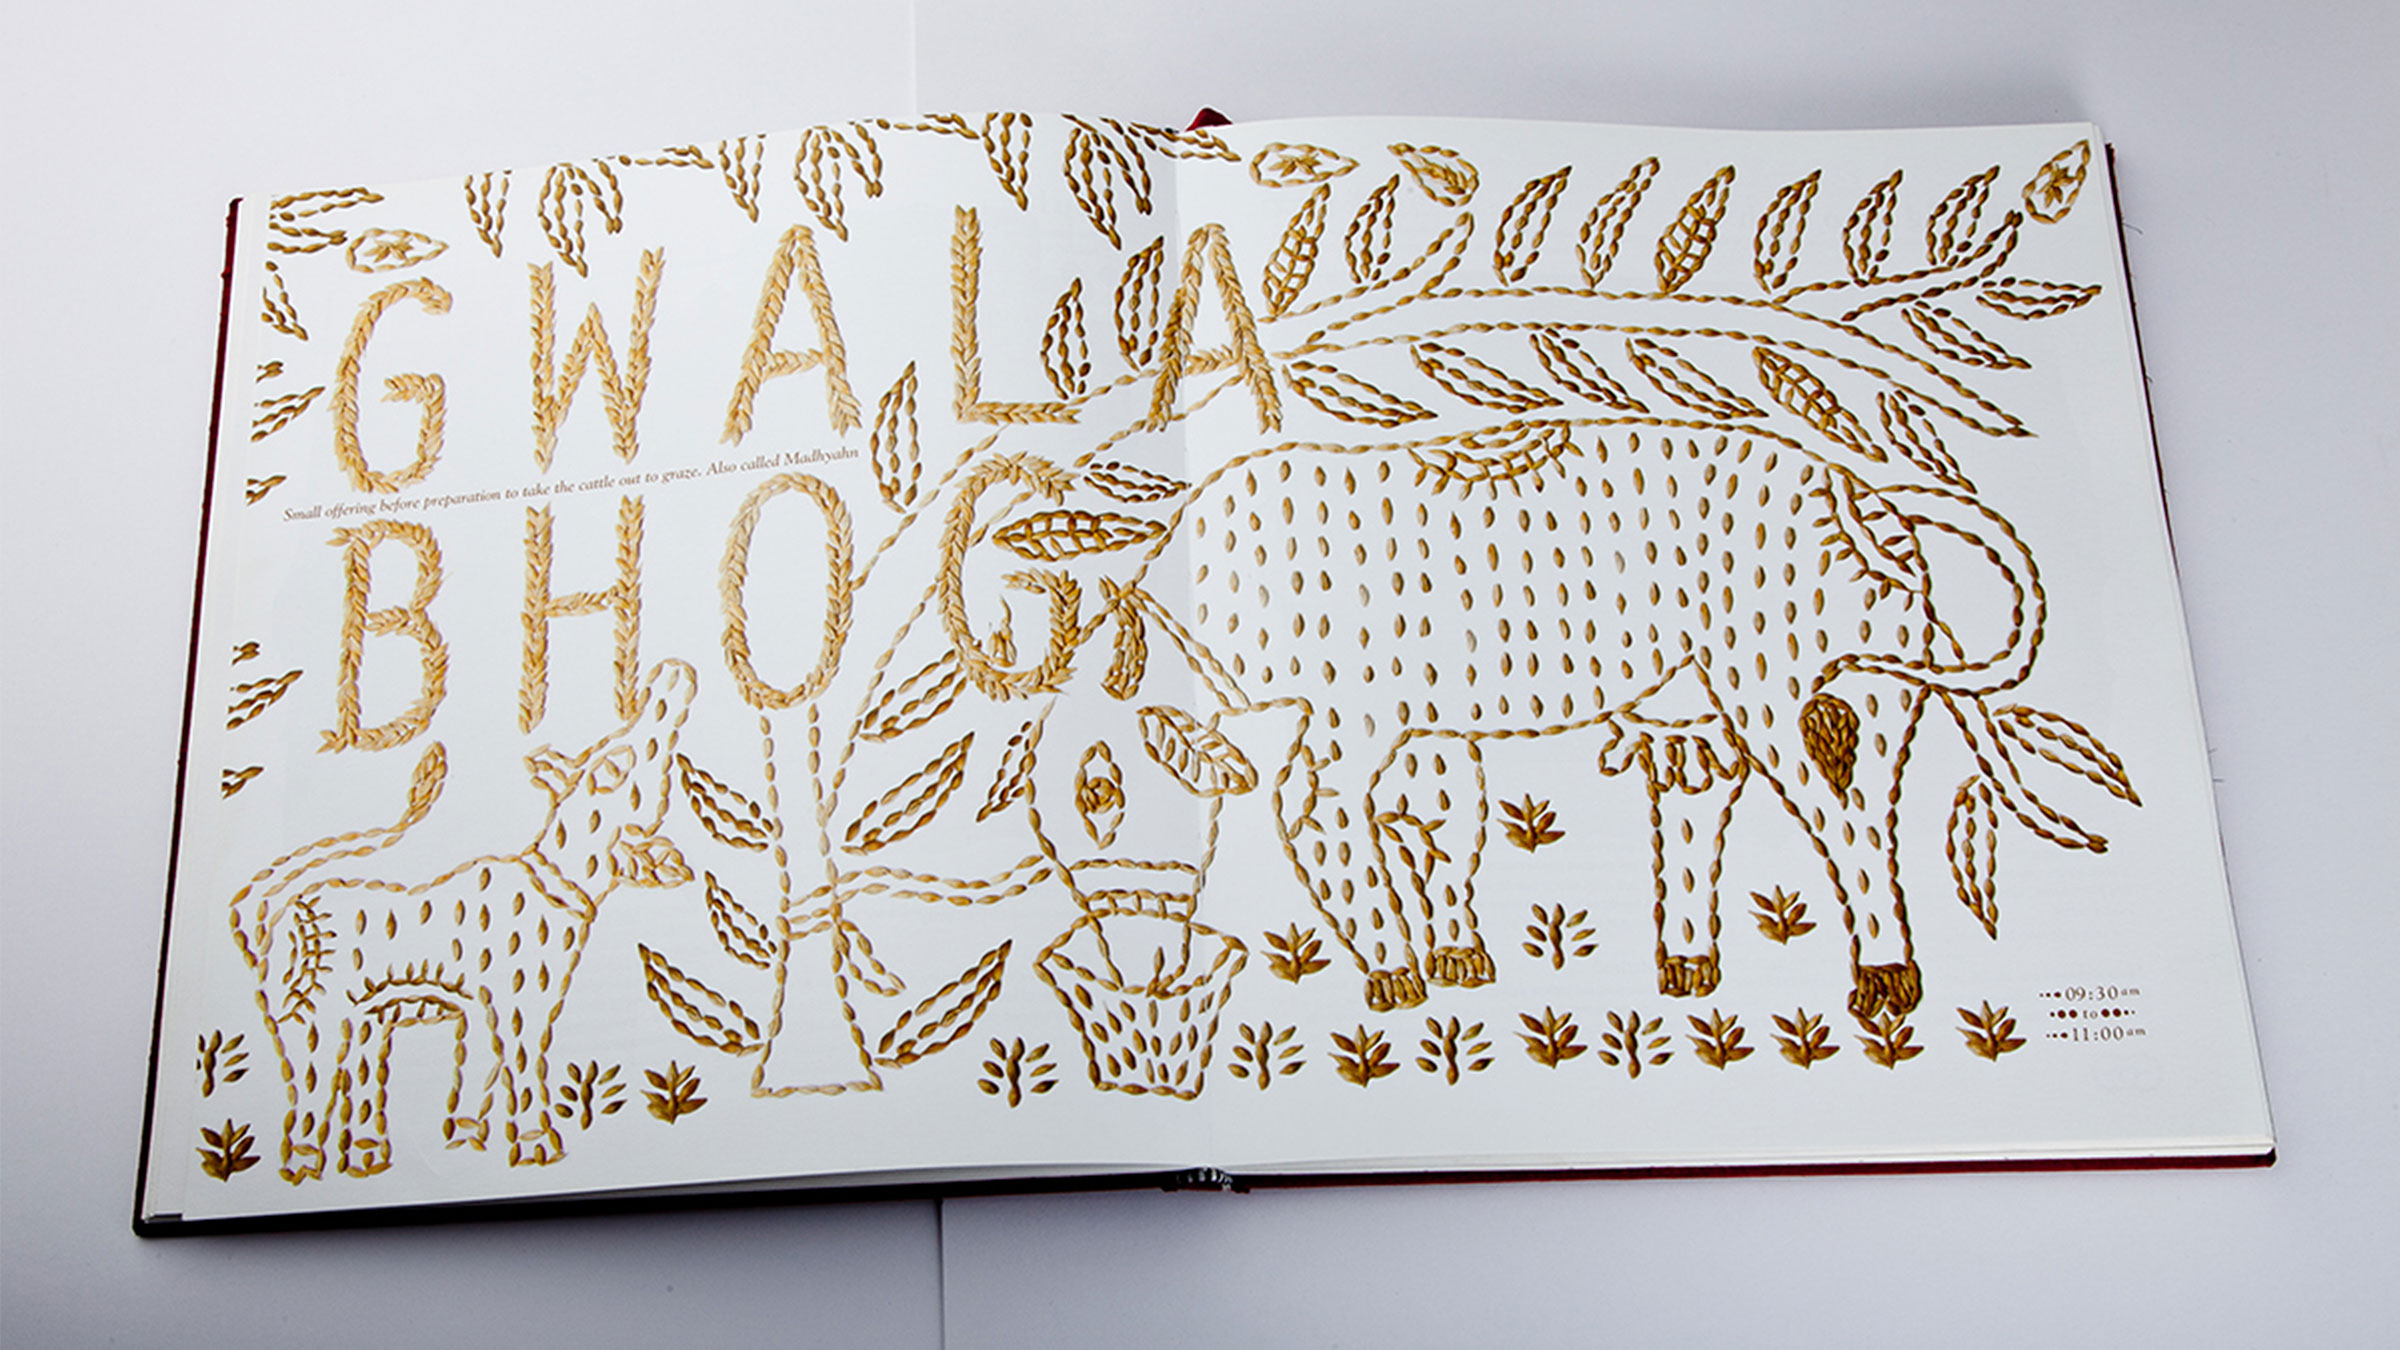 GWALA
Small offering before preparation to take the cattle out to graze. Also called Madhyahn
BHOG
09:30 am
to
11:00 am